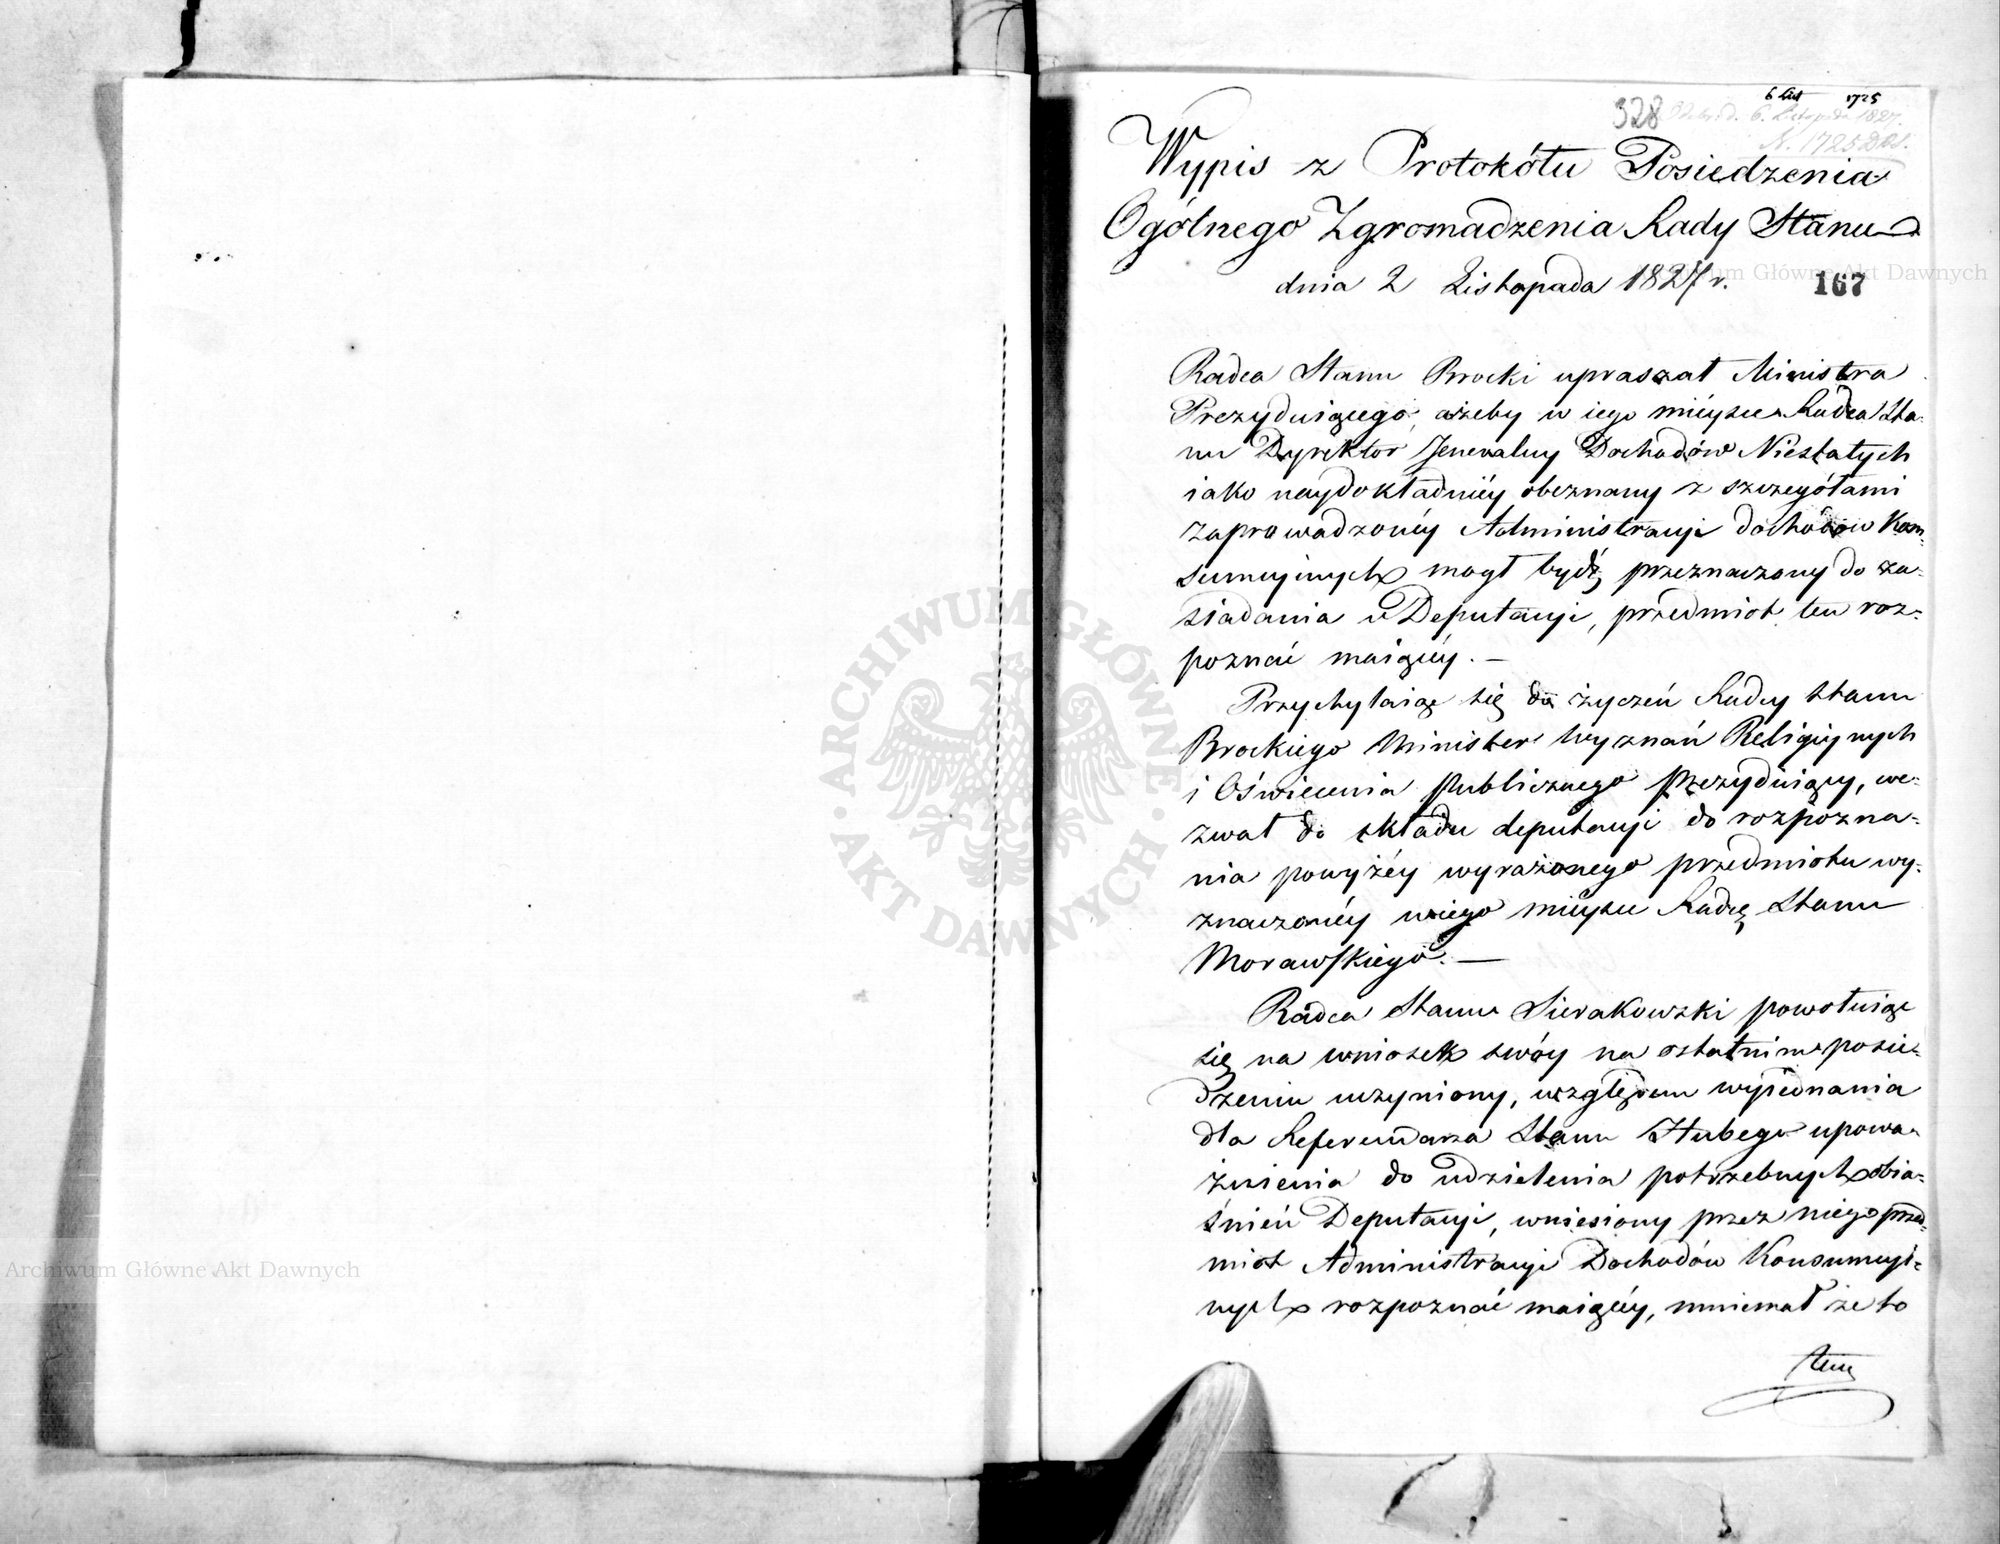 6 List 1725
328 Odebr. d. 6. Listopada 1827.
N. 1725
Wypis z Protokółu Posiedzenia
Ogólnego Zgromadzenia Rady Stanu
dnia 2 Listopada 1827 r.
167
Radca Stanu Brocki upraszał Ministra
Prezyduiącego, ażeby w iego mieyscu Radca Sta-
nu Dyrektor Jeneralny Dochodów Niestałych
iako naydokładniéy obeznany z szczegółami
zaprowadzonéy Administracyi dochodów Kon-
sumcyinych mógł bydź przeznaczony do za-
siadania w Deputacyi, przedmiot ten roz-
poznać maiącéy. —
Przychylaiąc się do życzeń Radcy Stanu
Brockiego Minister Wyznań Religiynych
i Oświecenia Publicznego Prezyduiący, we-
zwał do składu deputacyi do rozpozna-
nia powyżéy wyrażonego przedmiotu wy-
znaczonéy w iego mieyscu Radcę Stanu
Morawskiego. —
Radca Stanu Sierakowski powołuiąc
się na wniosek swóy na ostatnim posie-
dzeniu uczyniony, względem wyiednania
dla Referendarza Stanu Hubego upowa-
żnienia do udzielenia potrzebnych obia-
śnień Deputacyi, wniesiony przez niego przed-
miot Administracyi Dochodów Konsumcyi-
nych rozpoznać maiącéy, mniemał że to
temu
Archiwum Główne Akt Dawnych
ARCHIWUM GŁÓWNE · AKT DAWNYCH ·
Archiwum Główne Akt Dawnych